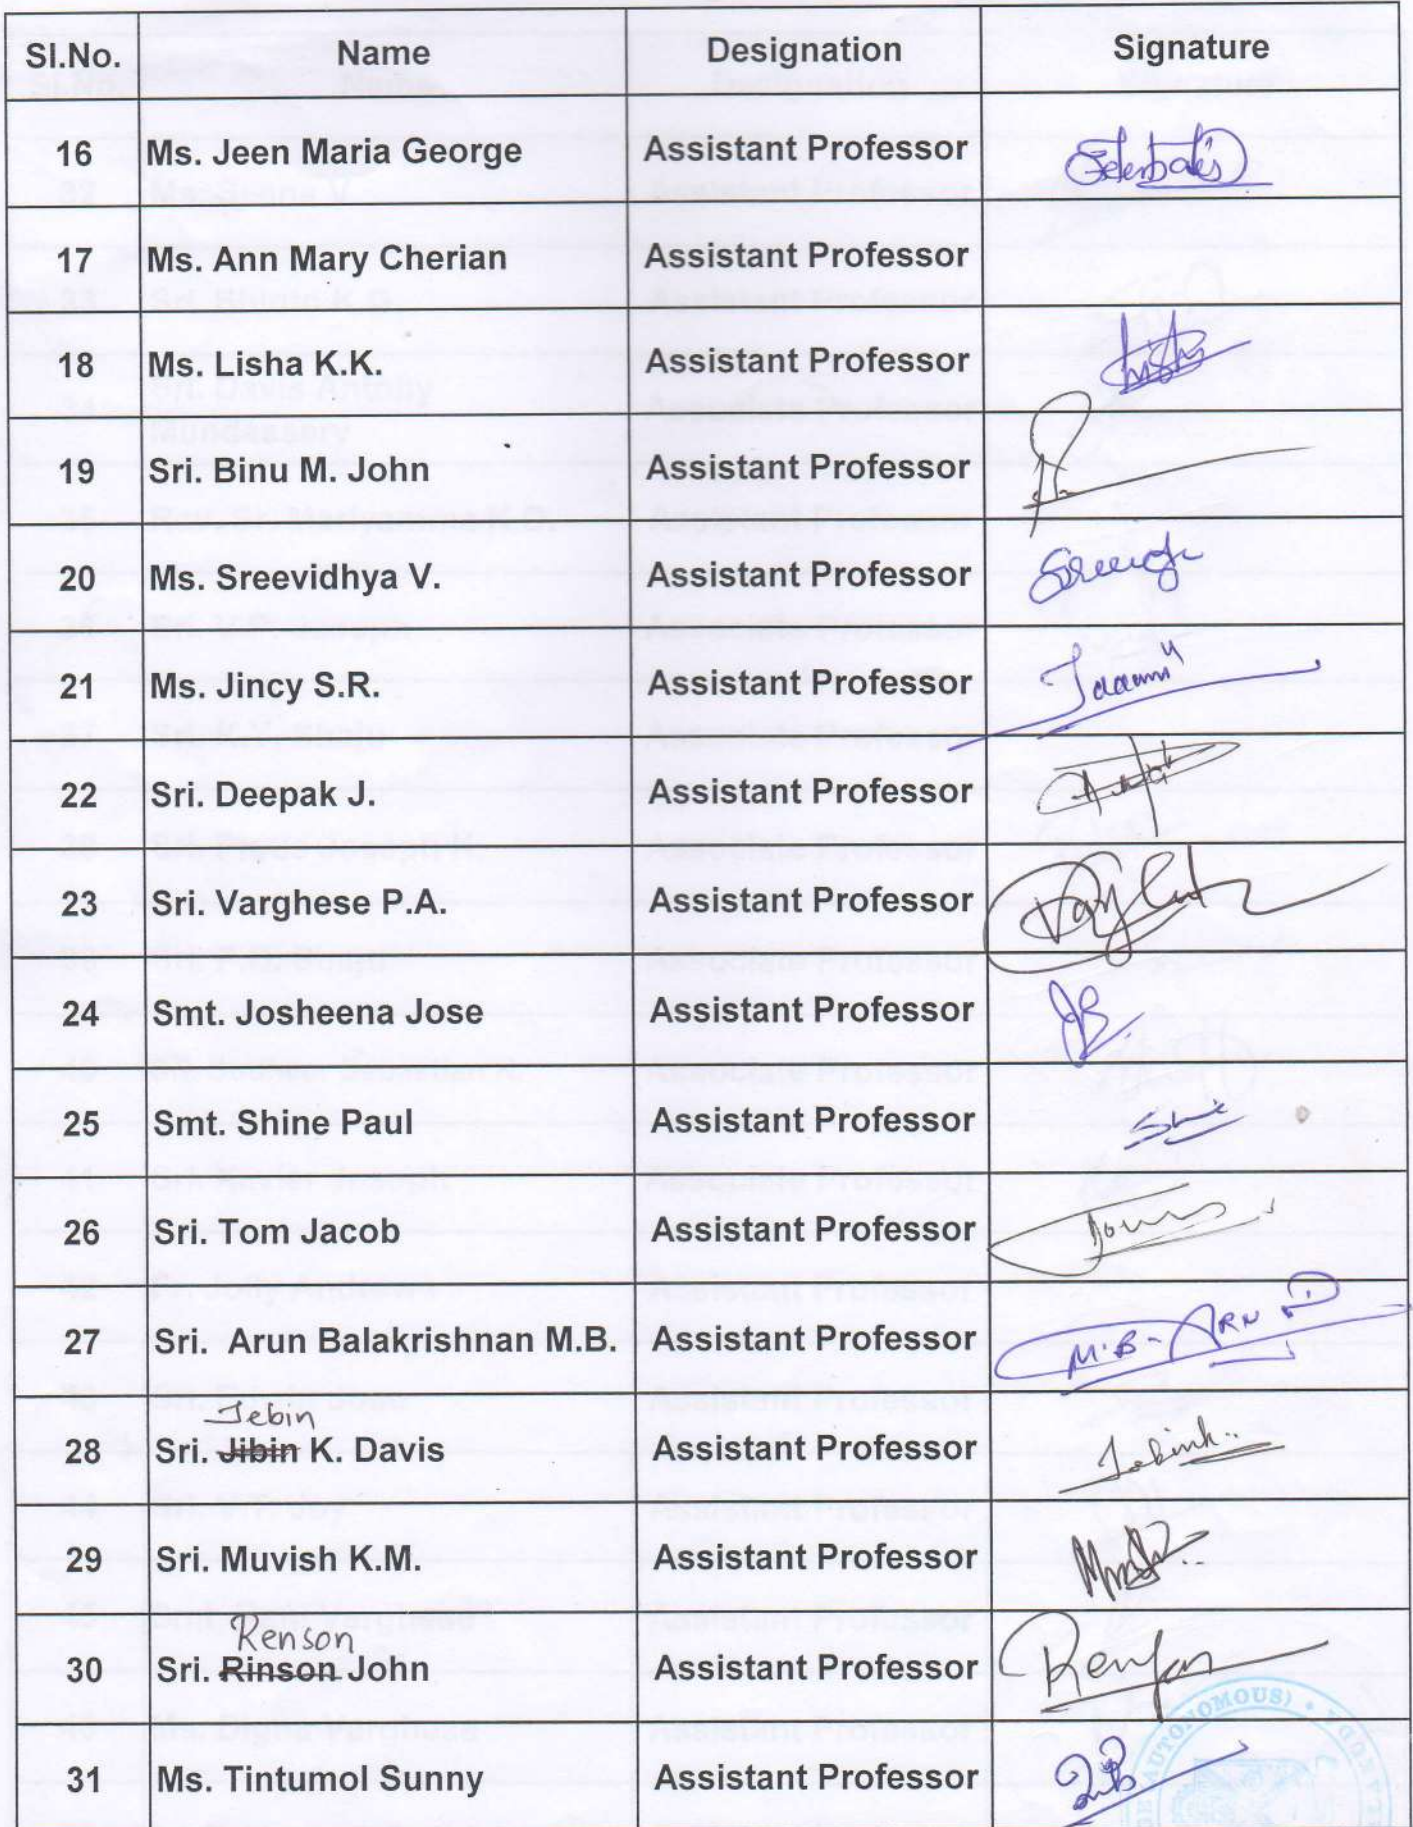 Sl.No. Name Designation Signature
16 Ms. Jeen Maria George Assistant Professor
17 Ms. Ann Mary Cherian Assistant Professor
18 Ms. Lisha K.K. Assistant Professor
19 Sri. Binu M. John Assistant Professor
20 Ms. Sreevidhya V. Assistant Professor
21 Ms. Jincy S.R. Assistant Professor
22 Sri. Deepak J. Assistant Professor
23 Sri. Varghese P.A. Assistant Professor
24 Smt. Josheena Jose Assistant Professor
25 Smt. Shine Paul Assistant Professor
26 Sri. Tom Jacob Assistant Professor
27 Sri. Arun Balakrishnan M.B. Assistant Professor M.B-ARN
Jebin
28 Sri. Jibin K. Davis Assistant Professor Jebink..
29 Sri. Muvish K.M. Assistant Professor
Renson
30 Sri. Rinson John Assistant Professor Renson
AUTONOMOUS)
31 Ms. Tintumol Sunny Assistant Professor